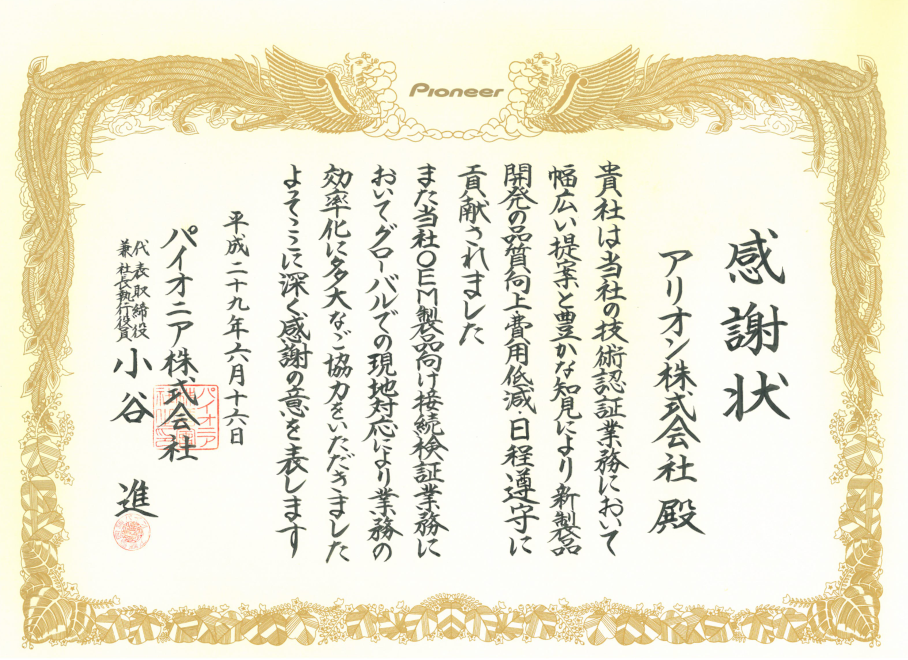 Pioneer
感謝状
アリオン株式会社 殿
貴社は当社の技術認証業務において
幅広い提案と豊かな知見により新製品
開発の品質向上・費用低減・日程遵守に
貢献されました
また当社OEM製品向け接続検証業務に
おいてグローバルでの現地対応により業務の
効率化に多大なご協力をいただきました
よってここに深く感謝の意を表します
平成二十九年六月十六日
パイオニア株式会社
代表取締役
兼 社長執行役員
小谷 進